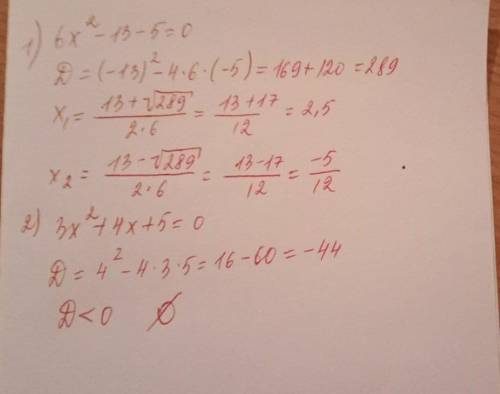 1) 6x² - 13 - 5 = 0
D = (-13)² - 4·6·(-5) = 169 + 120 = 289
x₁ = (13 + √289)/(2·6) = (13 + 17)/12 = 2,5
x₂ = (13 - √289)/(2·6) = (13 - 17)/12 = -5/12
2) 3x² + 4x + 5 = 0
D = 4² - 4·3·5 = 16 - 60 = -44
D < 0 ∅